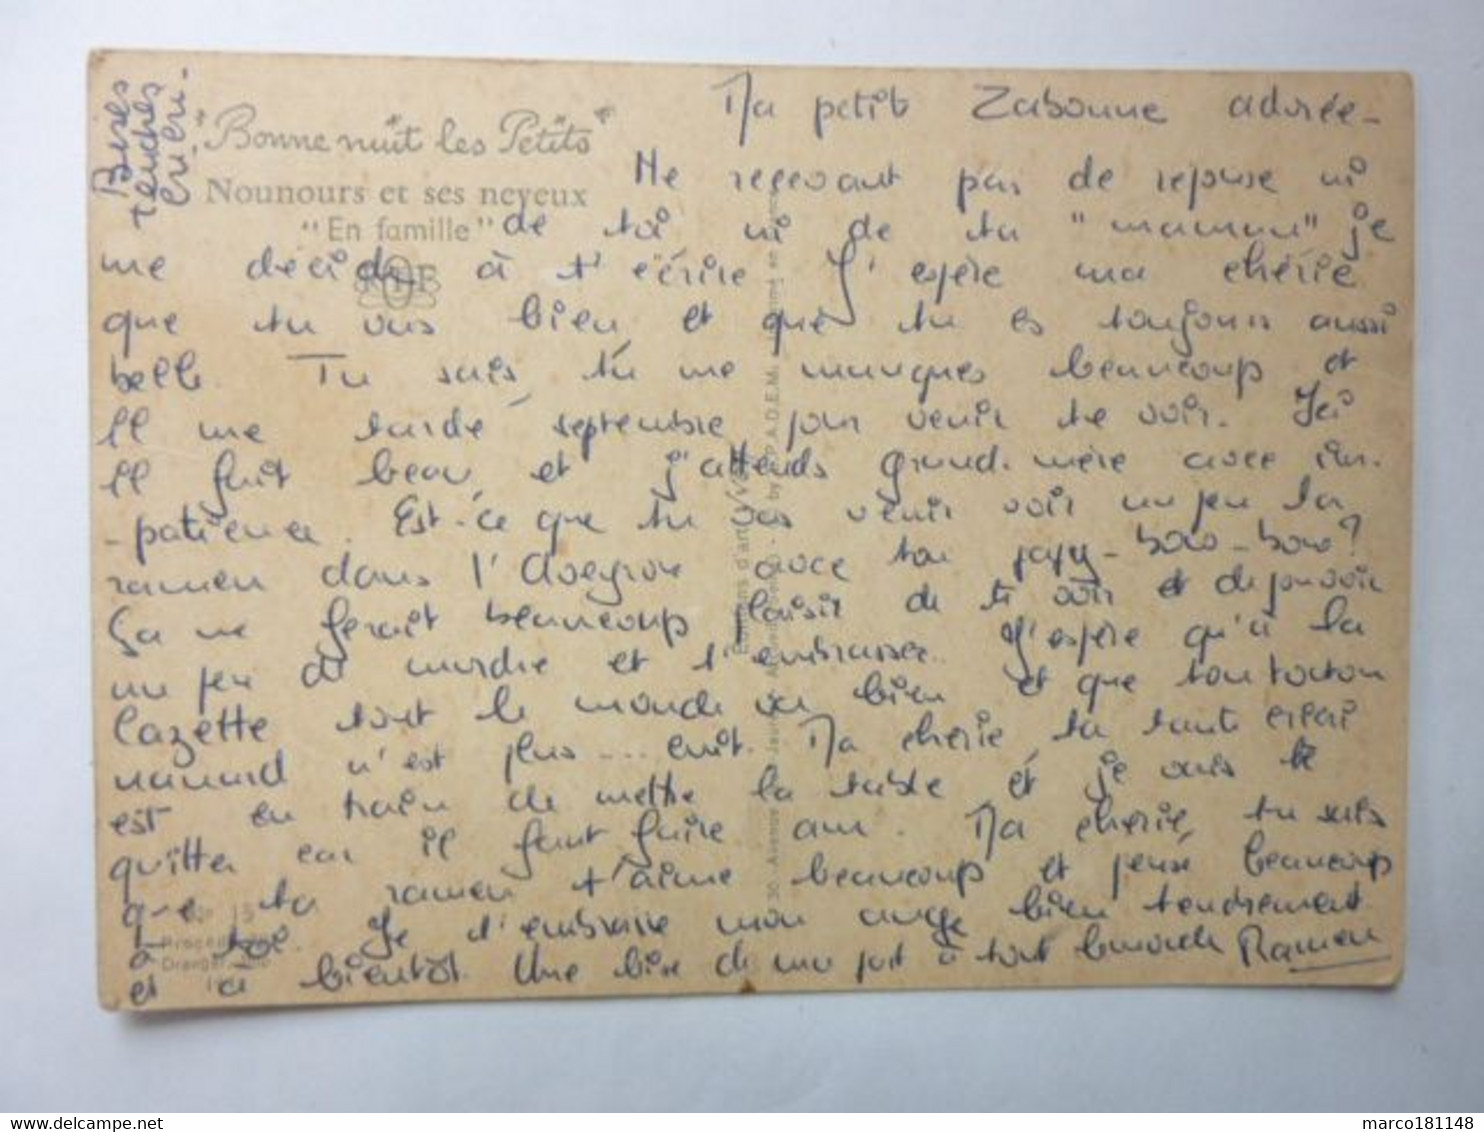 "Bonne nuit les Petits"
Nounours et ses neveux
"En famille"
Ma petite Zabonne adorée -
Ne recevant pas de reponse ni
de toi ni de ta "maman" je
me décide à t'écrire J'espère ma chérie
que tu vas bien et que tu es toujours aussi
belle. Tu sais, tu me manques beaucoup et
Il me tarde septembre pour venir te voir. Ici
Il fait beau et j'attends grand-mère avec im-
-patience. Est-ce que tu vas venir voir un peu ta
ramen dans l'Aveyron avec ton papy-bobo-bobo?
Ça me ferait beaucoup plaisir de te voir et de pouvoir
un peu te mordre et t'embrasser. J'espère qu'à la
Cazette tout le monde va bien et que ton tonton
nanard n'est plus ... cuit. Ma chérie, ta tante
est en train de mettre la table et je vais te
quitter car il faut faire am. Ma chérie, tu sais
que ta ramen t'aime beaucoup et pense beaucoup
à toi. Je t'embrasse mon ange bien tendrement
et à bientôt. Une bise de ma part à tout le monde Ramen
Bises
tendres
N° 15
marco181148